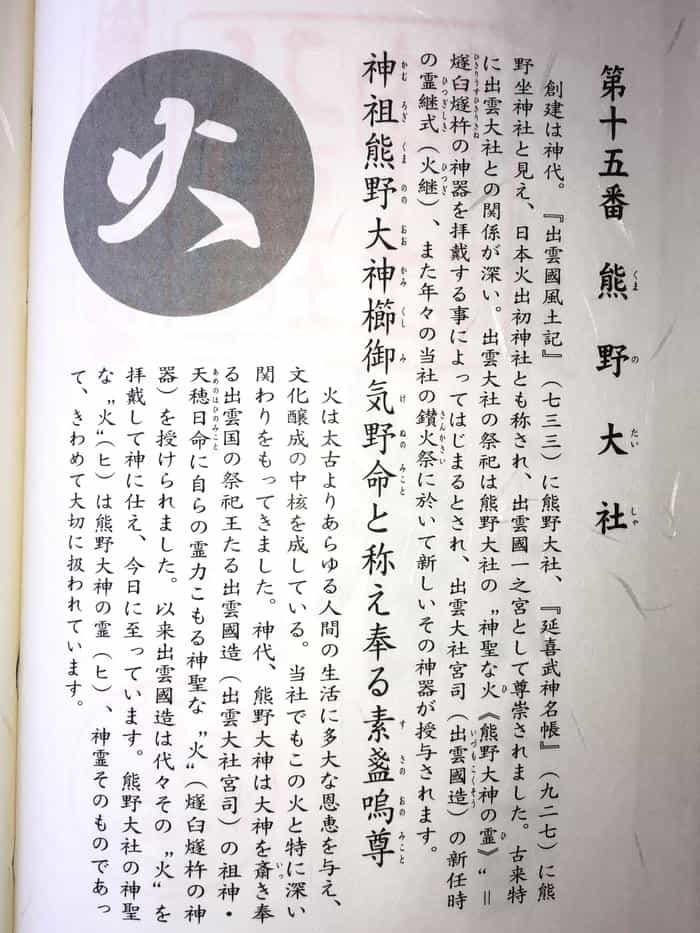 第十五番 熊野大社
創建は神代。『出雲國風土記』（七三三）に熊野大社、『延喜武神名帳』（九二七）に熊
野坐神社と見え、日本火出初神社とも称され、出雲國一之宮として尊崇されました。古来特
に出雲大社との関係が深い。出雲大社の祭祀は熊野大社の〝神聖な火《熊野大神の霊》〟＝
燧臼燧杵の神器を拝戴する事によってはじまるとされ、出雲大社宮司（出雲國造）の新任時
の霊継式（火継）、また年々の当社の鑚火祭に於いて新しいその神器が授与されます。
神祖熊野大神櫛御気野命と称え奉る素盞嗚尊
火
火は太古よりあらゆる人間の生活に多大な恩恵を与え、
文化醸成の中核を成している。当社でもこの火と特に深い
関わりをもってきました。神代、熊野大神は大神を斎き奉
る出雲国の祭祀王たる出雲國造（出雲大社宮司）の祖神・
天穂日命に自らの霊力こもる神聖な〝火〟（燧臼燧杵の神
器）を授けられました。以来出雲國造は代々その〝火〟を
拝戴して神に仕え、今日に至っています。熊野大社の神聖
な〝火〟（ヒ）は熊野大神の霊（ヒ）、神霊そのものであっ
て、きわめて大切に扱われています。